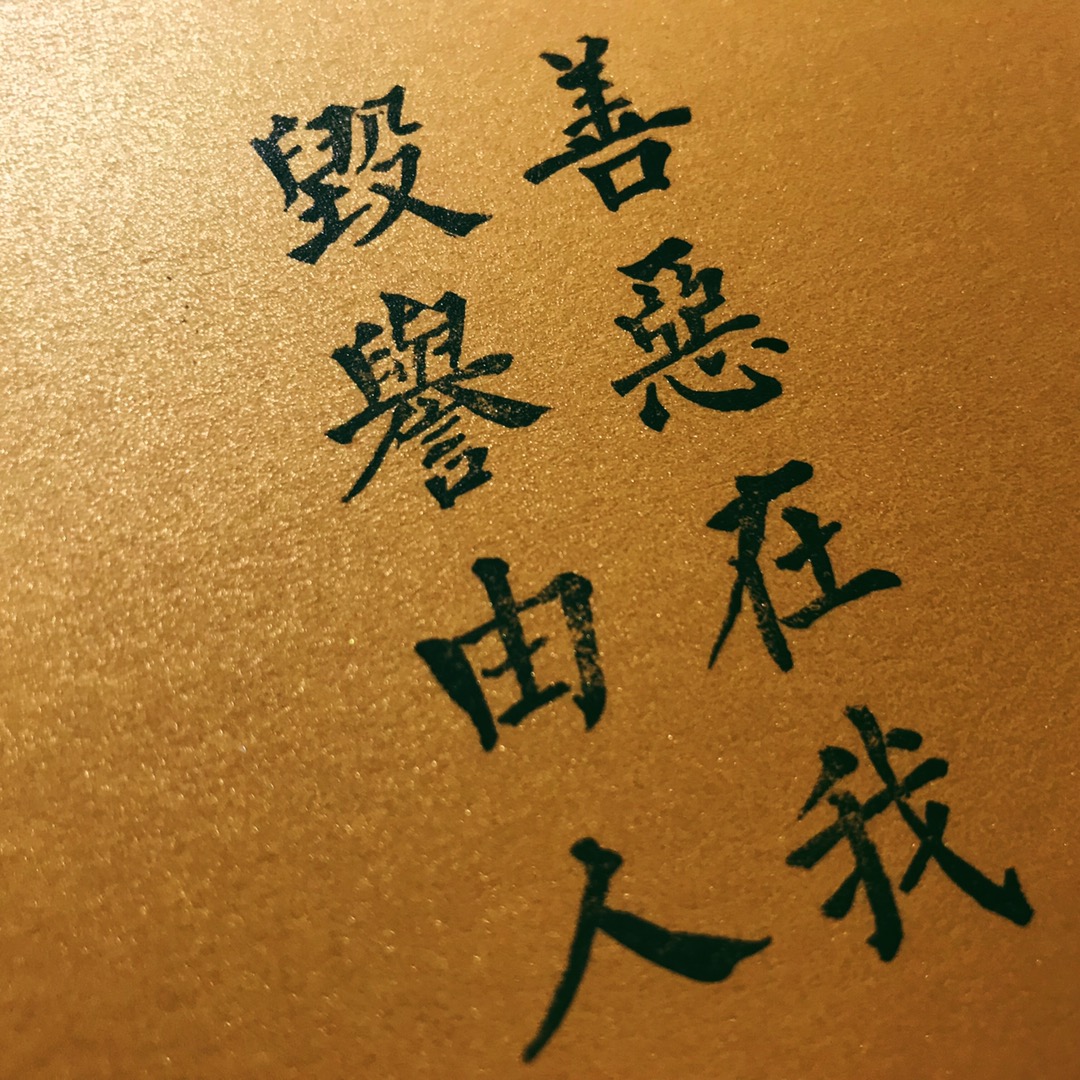 善惡在我
毀譽由人